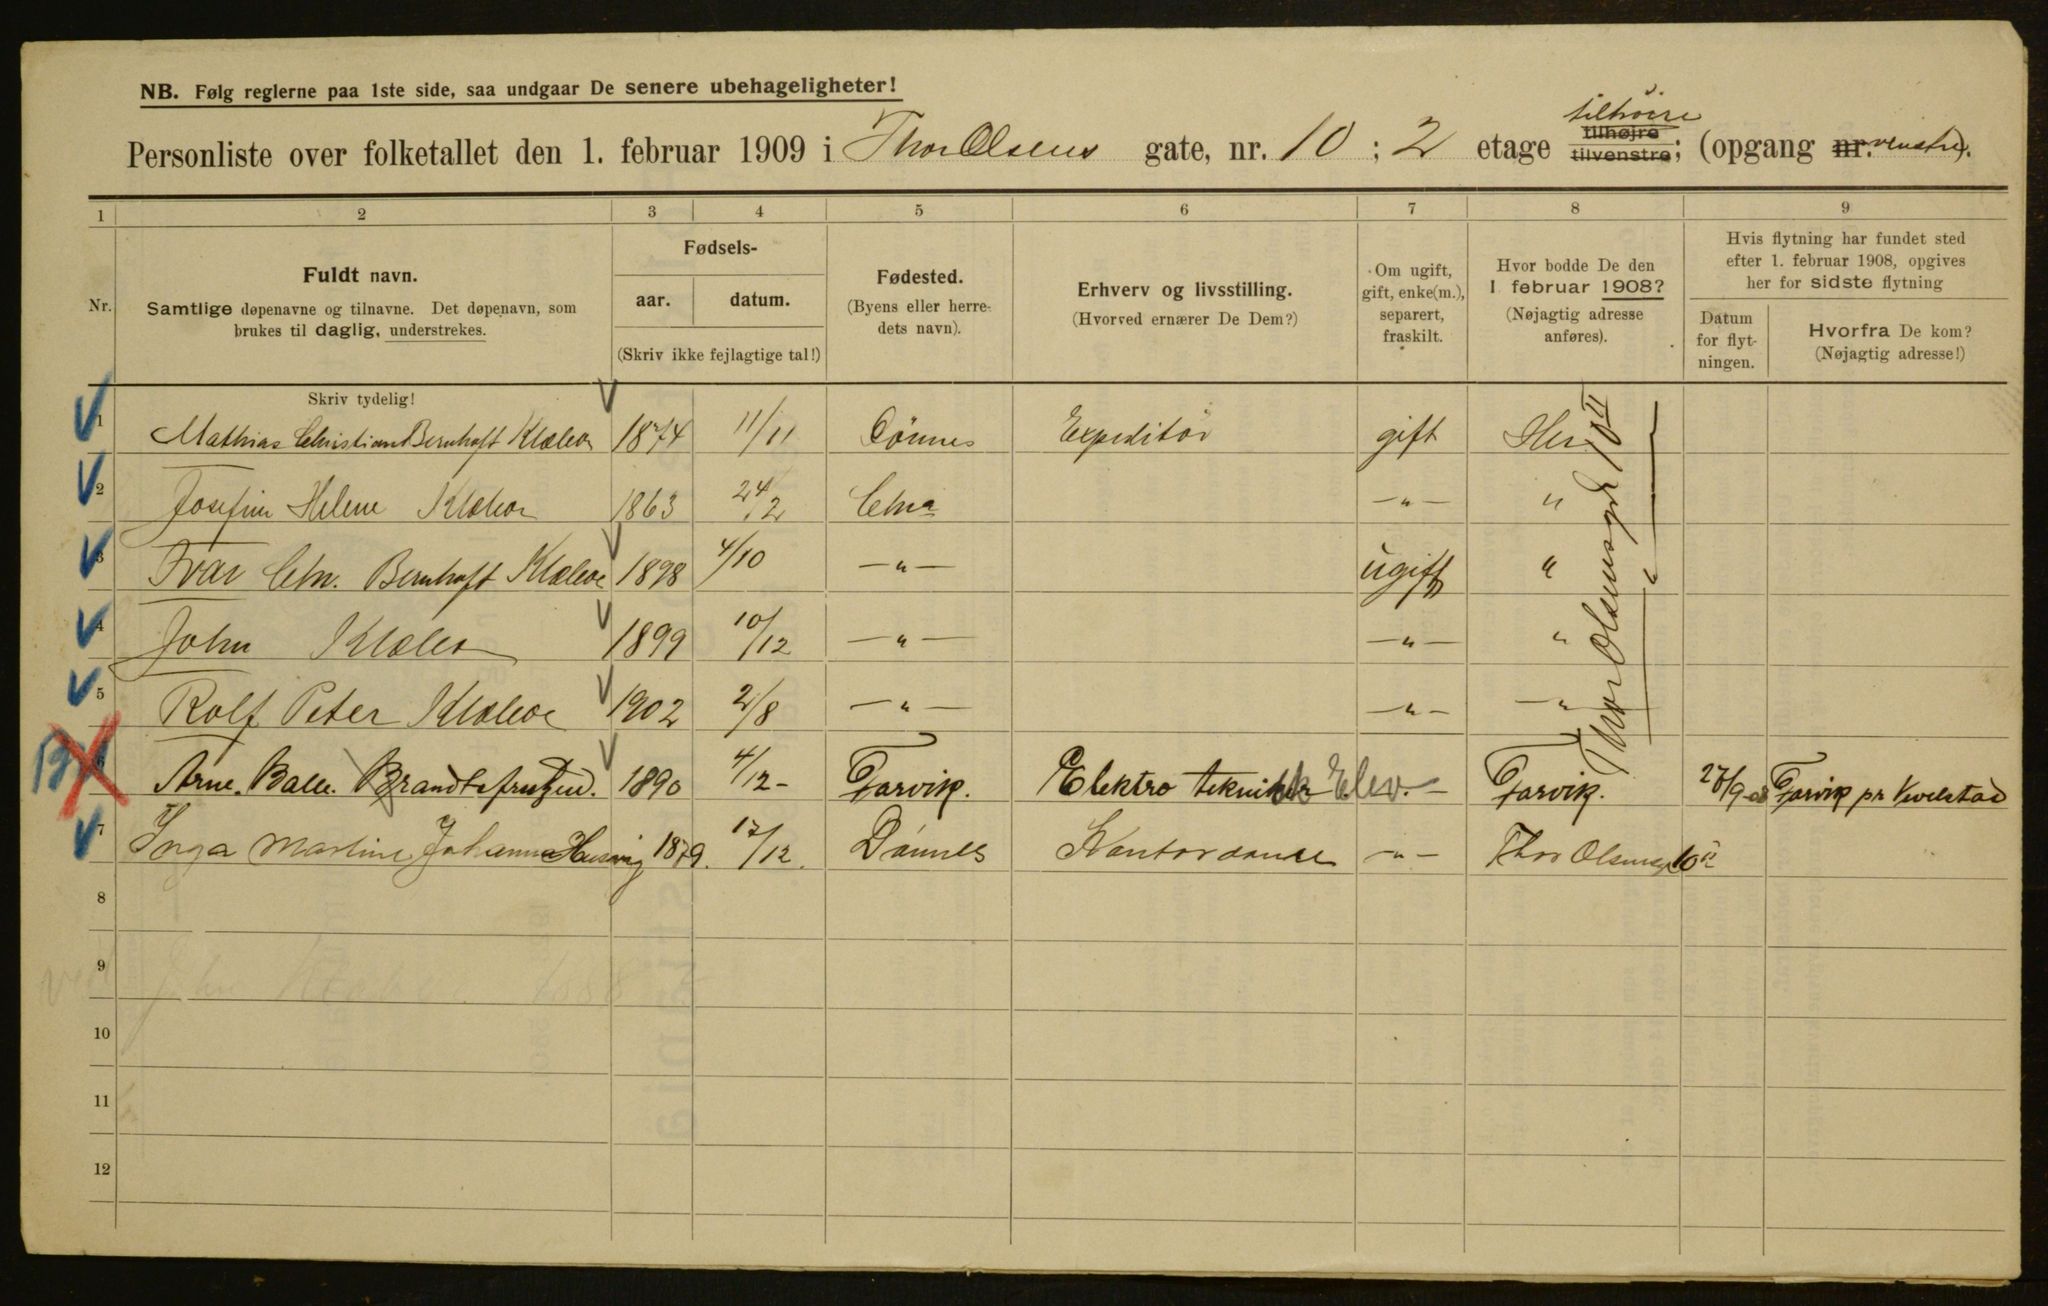 NB. Følg reglerne paa 1ste side, saa undgaar De senere ubehageligheter!
tilhøire
Personliste over folketallet den 1. februar 1909 i Thor Olsens gate, nr. 10 ; 2 etage tilhøjre tilvenstre; (opgang nr. venstre).
1 2 3 4 5 6 7 8 9
Nr.
Fuldt navn.
Samtlige døpenavne og tilnavne. Det døpenavn, som
brukes til daglig, understrekes.
Fødsels-
aar. datum.
(Skriv ikke fejlagtige tal!)
Fødested.
(Byens eller herre-
dets navn).
Erhverv og livsstilling.
(Hvorved ernærer De Dem?)
Om ugift,
gift, enke(m.),
separert,
fraskilt.
Hvor bodde De den
1 februar 1908?
(Nøjagtig adresse
anføres).
Hvis flytning har fundet sted
efter 1. februar 1908, opgives
her for sidste flytning
Datum
for flyt-
ningen.
Hvorfra De kom?
(Nøjagtig adresse!)
Skriv tydelig!
1 Mathias Christian Bernhoft Klæboe 1874 11/11 Dönnes Expeditör gift Her
Thor Olsensgd 10 II
2 Josefine Helene Klæboe 1863 24/2 Chra —"— "
3 Ivar Chr. Bernhoft Klæboe 1898 4/10 —"— ugift "
4 John Klæboe 1899 10/12 —"— —"— "
5 Rolf Peter Klæboe 1902 2/8 —"— —"— —"
6 Arne. Balle. 1890 4/12 - Garvik. Elektro tekniker Elev. — Garvik. 27/9-08 Garvik pr
7 Inga Martine Johanne 1879. 17/12. Dønnes Kontordame —"— Thor Olsensg 10 II
8
9 John
10
11
12